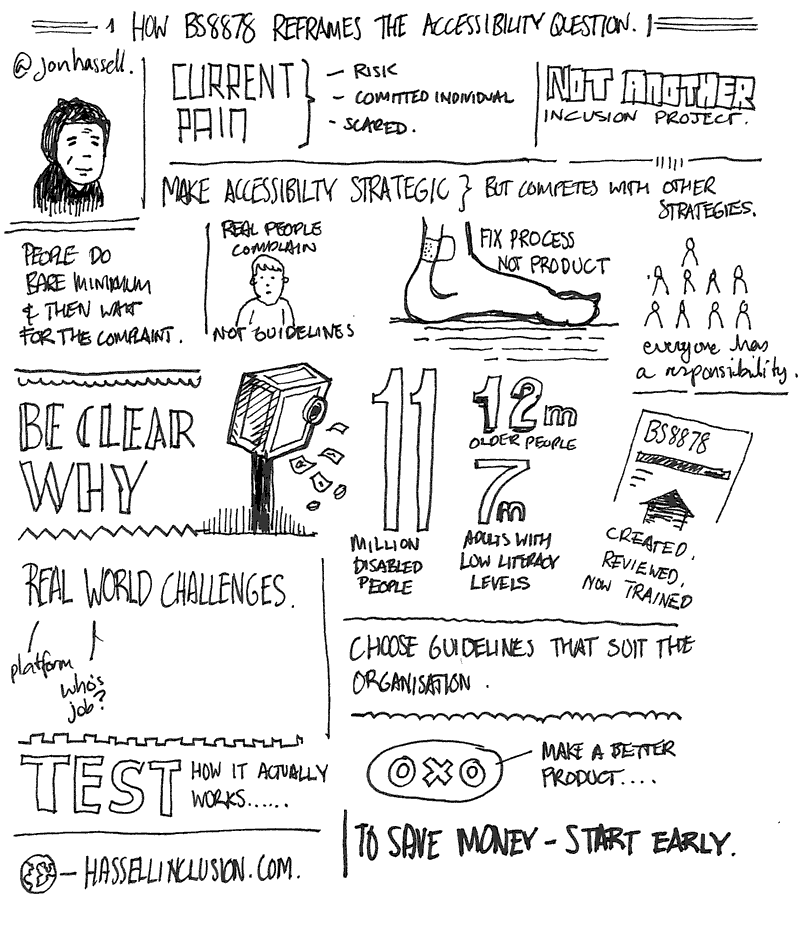 HOW BS8878 REFRAMES THE ACCESSIBILITY QUESTION.
@jonhassell.
CURRENT
PAIN
- RISK
- COMITTED INDIVIDUAL
- SCARED.
NOT ANOTHER
INCUSION PROJECT.
MAKE ACCESSIBILTY STRATEGIC } BUT COMPETES WITH OTHER
STRATEGIES.
PEOPLE DO
BARE MINIMUM
& THEN WAIT
FOR THE COMPLAINT.
REAL PEOPLE
COMPLAIN
NOT GUIDELINES
FIX PROCESS
NOT PRODUCT
everyone has
a responsibility.
BE CLEAR
WHY
11
MILLION
DISABLED
PEOPLE
12m
OLDER PEOPLE
7m
ADULTS WITH
LOW LITERACY
LEVELS
BS8878
CREATED,
REVIEWED,
NOW TRAINED
REAL WORLD CHALLENGES.
platform
who's
job?
CHOOSE GUIDELINES THAT SUIT THE
ORGANISATION.
TEST HOW IT ACTUALLY
WORKS......
MAKE A BETTER
PRODUCT....
TO SAVE MONEY - START EARLY.
- HASSELLINCLUSION.COM.